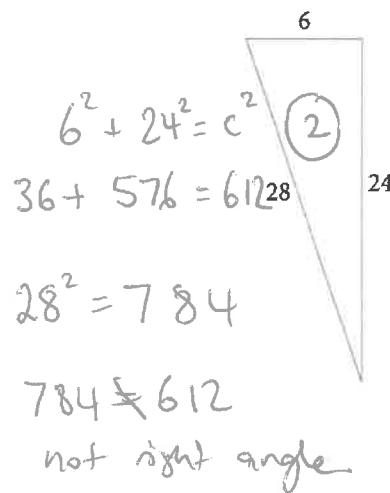 6
6² + 24² = c²
2
36 + 576 = 612
28
24
28² = 784
784 ≠ 612
not right angle